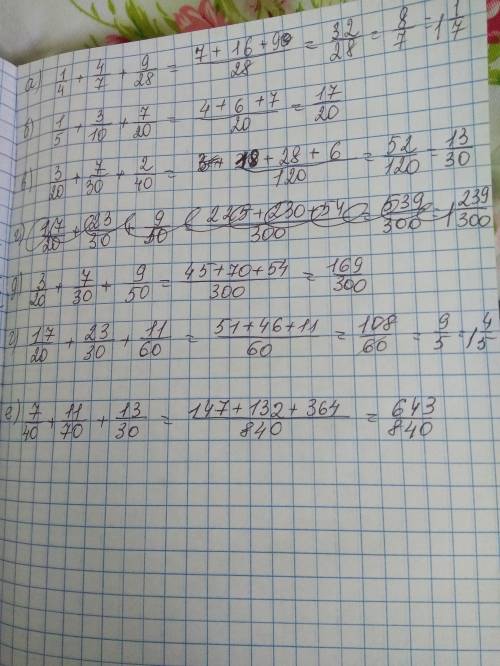 а) 1/4 + 4/7 + 9/28 = 7 + 16 + 9/28 = 32/28 = 8/7 = 1 1/7
б) 1/5 + 3/10 + 7/20 = 4 + 6 + 7/20 = 17/20
в) 3/20 + 7/30 + 2/40 = 18 + 28 + 6/120 = 52/120 = 13/30
г) 17/20 + 23/30 + 9/50 = 225 + 230 + 54/300 = 539/300 = 1 239/300
д) 3/20 + 7/30 + 9/50 = 45 + 70 + 54/300 = 169/300
г) 17/20 + 23/30 + 11/60 = 51 + 46 + 11/60 = 108/60 = 9/5 = 1 4/5
е) 7/40 + 11/70 + 13/30 = 147 + 132 + 364/840 = 643/840